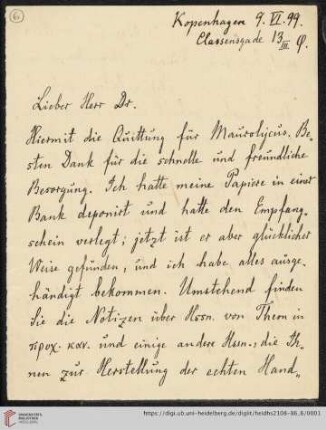 6
Kopenhagen 9. VI. 99.
Classensgade 13 III Ø.
Lieber Herr Dr.
Hiermit die Quittung für Maurolycus. Be-
sten Dank für die schnelle und freundliche
Besorgung. Ich hatte meine Papiere in einer
Bank deponirt und hatte den Empfang-
schein verlegt; jetzt ist er aber glücklicher
Weise gefunden, und ich habe alles ausge-
händigt bekommen. Umstehend finden
Sie die Notizen über Hssn. von Theon in
προχ. καν. und einige andere Hssn., die Ih-
nen zur Herstellung der echten Hand-
UNIVERSITÄTS-
BIBLIOTHEK
HEIDELBERG
https://digi.ub.uni-heidelberg.de/diglit/heidhs2108-86_6/0001